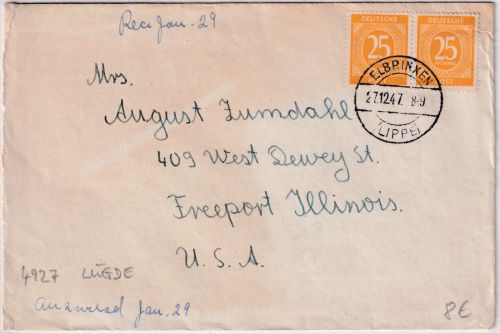 Rec'd Jan. 29
DEUTSCHE DEUTSCHE
25 25
PFENNIG
POST
ELBRINXEN
27.12.47. 8-9
(LIPPE)
Mrs.
August Zumdahl
409 West Dewey St.
Freeport Illinois.
U. S. A.
4927 LÜGDE
Answered Jan. 29
8€